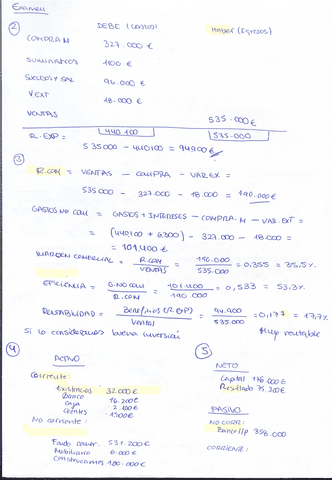 Examen
② DEBE (Gastos) Haber (Ingresos)
COMPRA M 327.000 €
Suministros 1100 €
SUELDOS Y SAL 94.000 €
V.EXT 18.000 €
VENTAS 535.000 €
R. EXP = 440.100 535.000
535000 - 440100 = 94900 €
③
R.COM = VENTAS - COMPRA - VAR.EX =
535.000 - 327.000 - 18.000 = 190.000 €
GASTOS NO COM = GASTOS + INTERESES - COMPRA.M - VAR.EXT =
= (440100 + 6300) - 327.000 - 18.000 =
= 101,400 €
MARGEN COMERCIAL = R.COM / VENTAS = 190.000 / 535.000 = 0,355 = 35,5%
EFICIENCIA = G.NO COM / R.COM = 101.400 / 190.000 = 0,533 = 53,3%
RENTABILIDAD = Beneficios (R EXP) / Ventas = 94.900 / 535.000 = 0,177 = 17,7%
Si lo consideramos buena inversión Muy rentable
④ ACTIVO
Corriente:
Existencias 32.000 €
Banco 16.200 €
Caja 2.100 €
Clientes 1500 €
No corriente:
531.200 €
Mobiliario 6.000 €
Construcciones 180.000 €
⑤ NETO
Capital 116.000 €
Resultado 75.300 €
PASIVO
NO CORR:
Banco l/p 358.000
CORRIENTE: